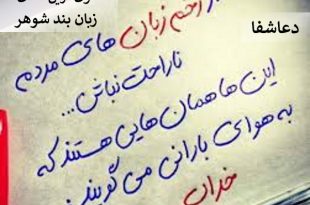 زبان بند شوهر
دعاشفا
از زخم زبان های مردم
ناراحت نباش...
این ها همان هایی هستند که
به هوای بارانی می گویند
خراب